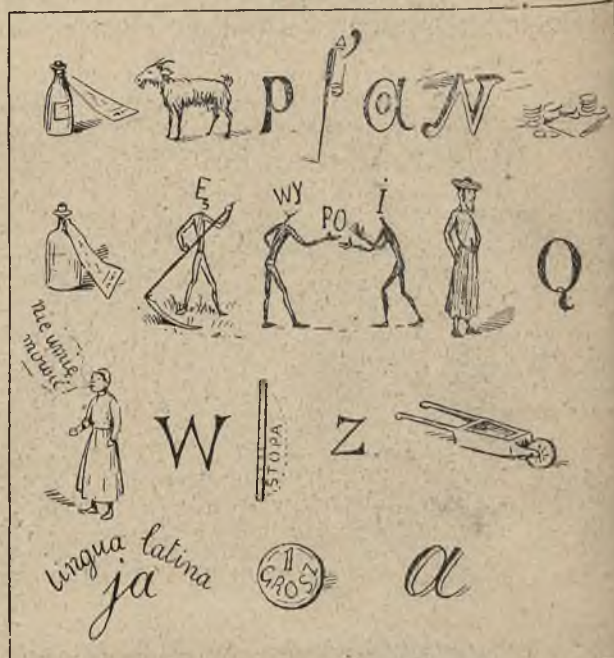 p a N
Ę WY PO i Q
nie umię
mówić!
W 1 STOPA Z
lingua latina
ja
1
GROSZ
a